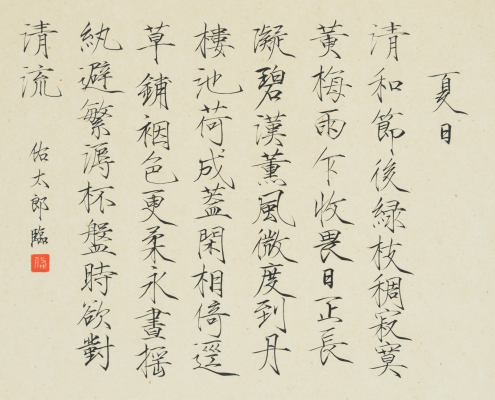 夏日
清和節後緑枝稠寂寞
黄梅雨乍收畏日正長
凝碧漢薫風微度到丹
樓池荷成蓋閑相倚逕
草鋪裀色更柔永晝搖
紈避繁溽杯盤時欲對
清流
佑太郎臨